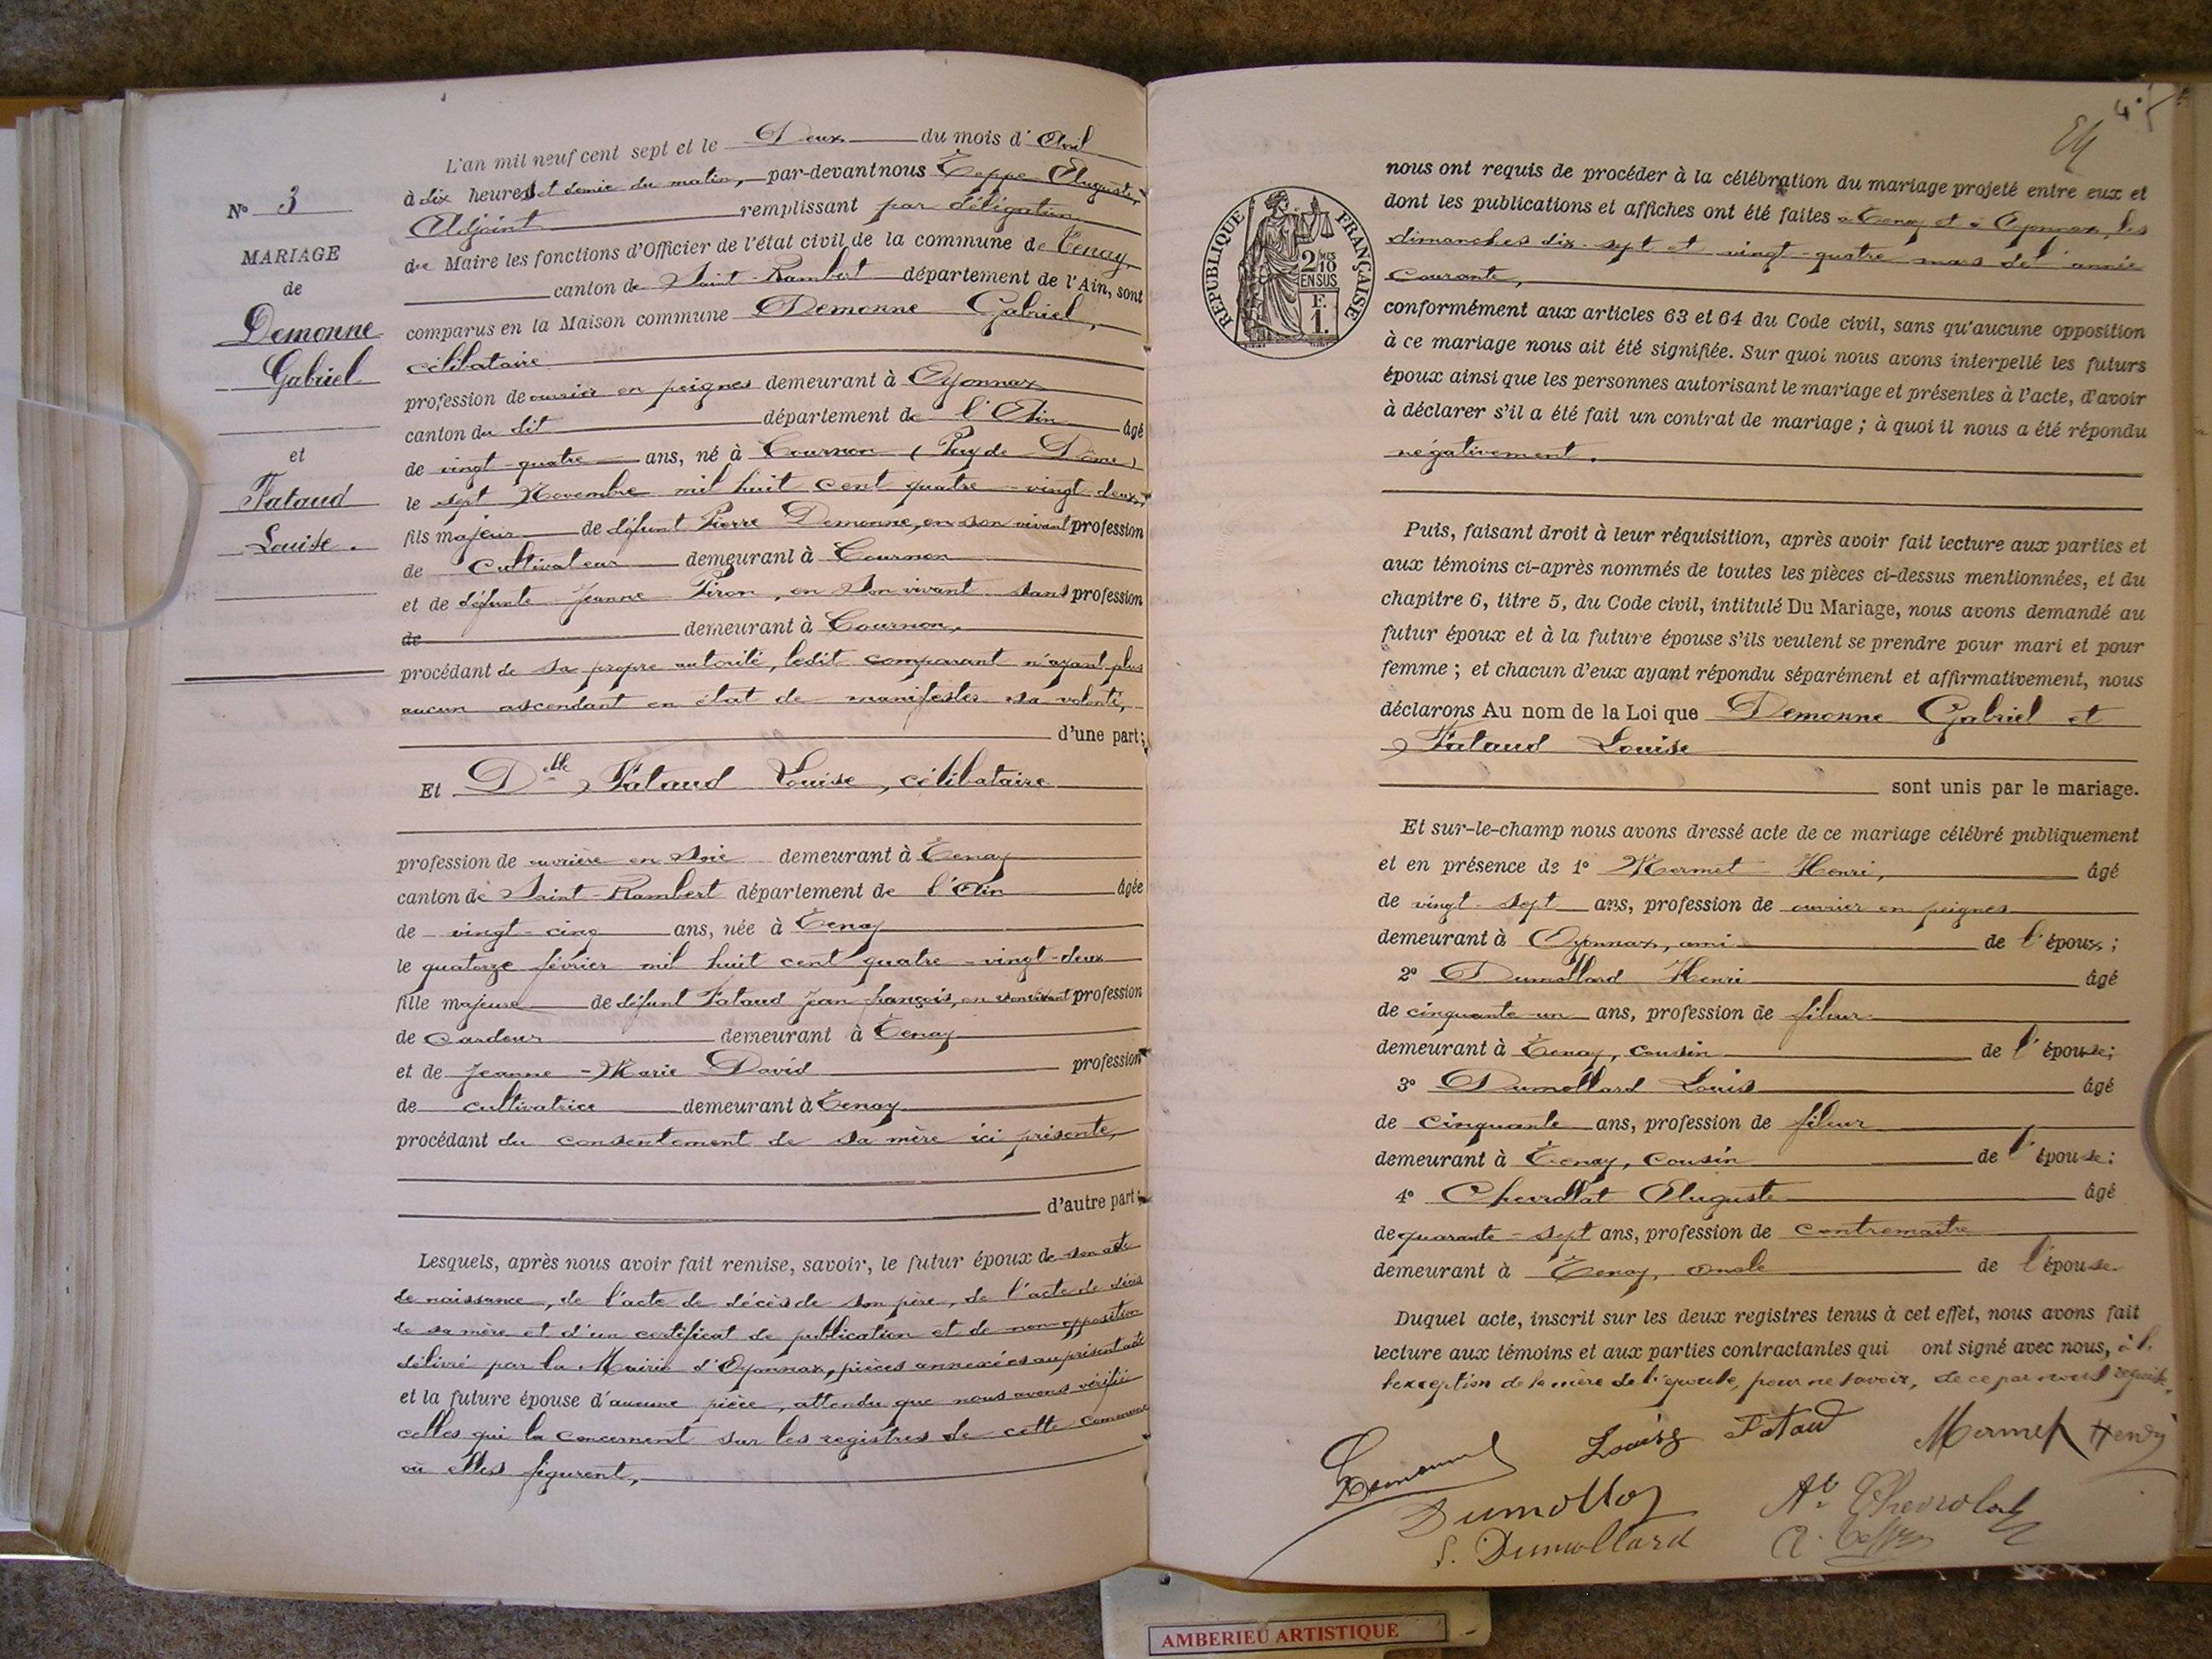 N° 3
MARIAGE
de
Demonne
Gabriel
et
Fataud
Louise.
L'an mil neuf cent sept et le Deux du mois d'Avril
à dix heures et demie du matin, par-devant nous Teppe Auguste,
Adjoint remplissant par délégation
du Maire les fonctions d'Officier de l'état civil de la commune de Tenay
canton de Saint-Rambert département de l'Ain, sont
comparus en la Maison commune Demonne Gabriel,
célibataire
profession de ouvrier en peignes demeurant à Oyonnax
canton du dit département de l'Ain âgé
de vingt-quatre ans, né à Cournon (Puy de Dôme)
le sept Novembre mil huit cent quatre-vingt-deux,
fils majeur de défunt Pierre Demonne, en son vivant profession
de Cultivateur demeurant à Cournon
et de défunte Jeanne Piron, en son vivant sans profession
de demeurant à Cournon,
procédant de sa propre autorité, ledit comparant n'ayant plus
aucun ascendant en état de manifester sa volonté,
d'une part;
Et Dlle Fataud Louise, célibataire
profession de ouvrière en soie demeurant à Tenay
canton de Saint-Rambert département de l'Ain âgée
de vingt-cinq ans, née à Tenay
le quatorze février mil huit cent quatre-vingt-deux
fille majeure de défunt Fataud Jean françois, en son vivant profession
de Cardeur demeurant à Tenay
et de Jeanne-Marie David profession
de cultivatrice demeurant à Tenay
procédant du consentement de sa mère ici présente,
d'autre part;
Lesquels, après nous avoir fait remise, savoir, le futur époux de son acte
de naissance, de l'acte de décès de son père, de l'acte de décès
de sa mère et d'un certificat de publication et de non-opposition
délivré par la Mairie d'Oyonnax, pièces annexées au présent acte
et la future épouse d'aucune pièce, attendu que nous avons vérifié
celles qui la concernent sur les registres de cette commune
où elles figurent,
45
RÉPUBLIQUE FRANÇAISE
2 MES
10
EN SUS
F.
1.
nous ont requis de procéder à la célébration du mariage projeté entre eux et
dont les publications et affiches ont été faites à Tenay et à Oyonnax, les
dimanches dix-sept et vingt-quatre mars de l'année
courante,
conformément aux articles 63 et 64 du Code civil, sans qu'aucune opposition
à ce mariage nous ait été signifiée. Sur quoi nous avons interpellé les futurs
époux ainsi que les personnes autorisant le mariage et présentes à l'acte, d'avoir
à déclarer s'il a été fait un contrat de mariage; à quoi il nous a été répondu
négativement.
Puis, faisant droit à leur réquisition, après avoir fait lecture aux parties et
aux témoins ci-après nommés de toutes les pièces ci-dessus mentionnées, et du
chapitre 6, titre 5, du Code civil, intitulé Du Mariage, nous avons demandé au
futur époux et à la future épouse s'ils veulent se prendre pour mari et pour
femme; et chacun d'eux ayant répondu séparément et affirmativement, nous
déclarons Au nom de la Loi que Demonne Gabriel et
Fataud Louise
sont unis par le mariage.
Et sur-le-champ nous avons dressé acte de ce mariage célébré publiquement
et en présence de 1° Mermet Henri, âgé
de vingt-sept ans, profession de ouvrier en peignes
demeurant à Oyonnax, ami de l'époux;
2° Dumollard Henri âgé
de cinquante-un ans, profession de fileur
demeurant à Tenay, cousin de l'épouse;
3° Dumollard Louis âgé
de cinquante ans, profession de fileur
demeurant à Tenay, cousin de l'épouse;
4° Chevrolat Auguste âgé
de quarante-sept ans, profession de contremaître
demeurant à Tenay, oncle de l'épouse
Duquel acte, inscrit sur les deux registres tenus à cet effet, nous avons fait
lecture aux témoins et aux parties contractantes qui ont signé avec nous, à l.
l'exception de la mère de l'épouse, pour ne savoir, de ce par nous requise.
Demonne Louise Fataud Mermet Henri
Dumollar At Chevrolat
S. Dumollard A. Teppe
AMBERIEU ARTISTIQUE